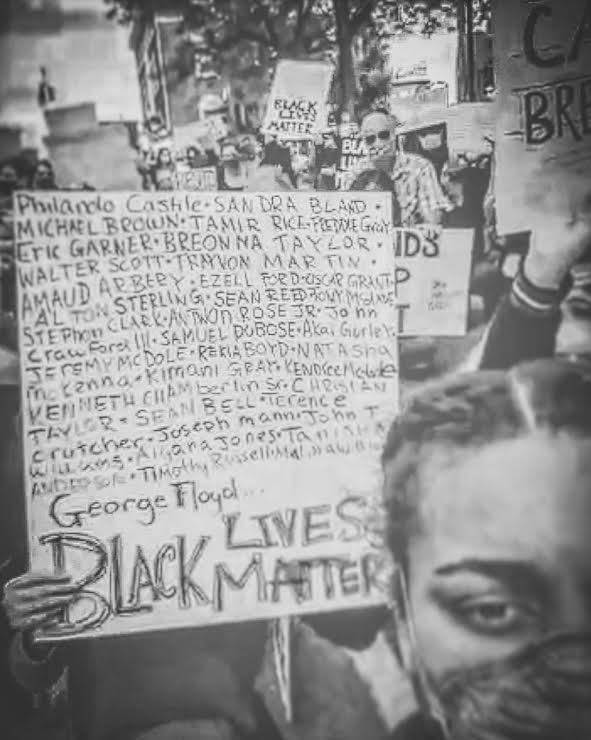 BLACK
LIVES
MATTER
CA
BRE
Philando Castile • SANDRA BLAND •
MICHAEL BROWN • TAMIR RICE • FREDDIE GRAY
ERIC GARNER • BREONNA TAYLOR •
WALTER SCOTT • TRAYVON MARTIN •
AMAUD ARBERY • EZELL FORD • OSCAR GRANT
ALTON STERLING • SEAN REED • TONY MCDADE
STEPHON CLARK • ANTWON ROSE JR • John
Crawford III • SAMUEL DUBOSE • Akai Gurley
JEREMY MCDOLE • REKIA BOYD • NATASHA
McKenna • Kimani GRAY • KENDREC McDade
KENNETH CHAMberlin Sr • CHRISTIAN
TAYLOR • SEAN BELL • Terence
Crutcher • Joseph mann • John T
Williams • Aiyana Jones • TANISHA
ANDERSON • Timothy Russell
George Floyd...
BLACK LIVES
MATTER